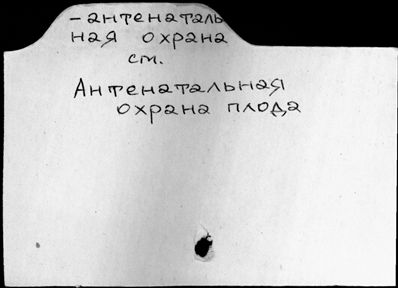 -антенаталь
ная охрана
см.
Антенатальная
охрана плода